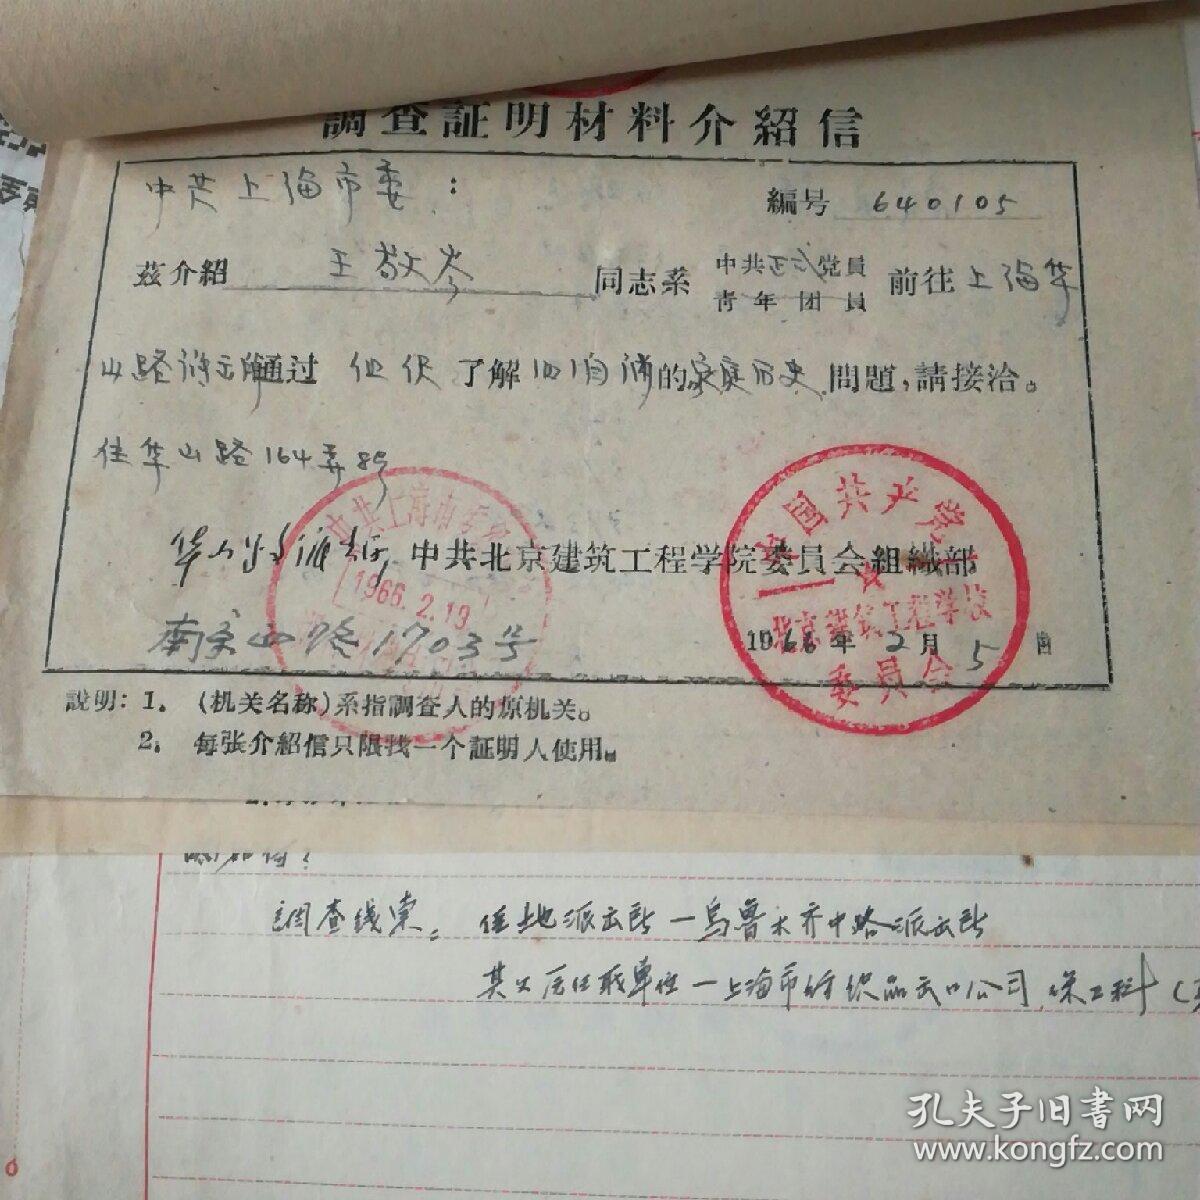 調查証明材料介紹信
中共上海市委：
編号 640105
茲介紹 王敬岑 同志系 中共正式党員 前往上海华
青年团員
山路 通过 了解 的家庭历史 問題，請接洽。
住华山路164弄8号
中共北京建筑工程学院委員会組織部
南京西路1703号
1966年2月5日
中共上海市委
1966.2.19
中国共产党
北京建筑工程学校
委員会
說明：1。（机关名称）系指調查人的原机关。
2。每张介紹信只限找一个証明人使用。
調查线索。住地派出所—乌鲁木齐中路派出所
其父居任职单位—上海市纺织品出口公司
孔夫子旧書网
www.kongfz.com